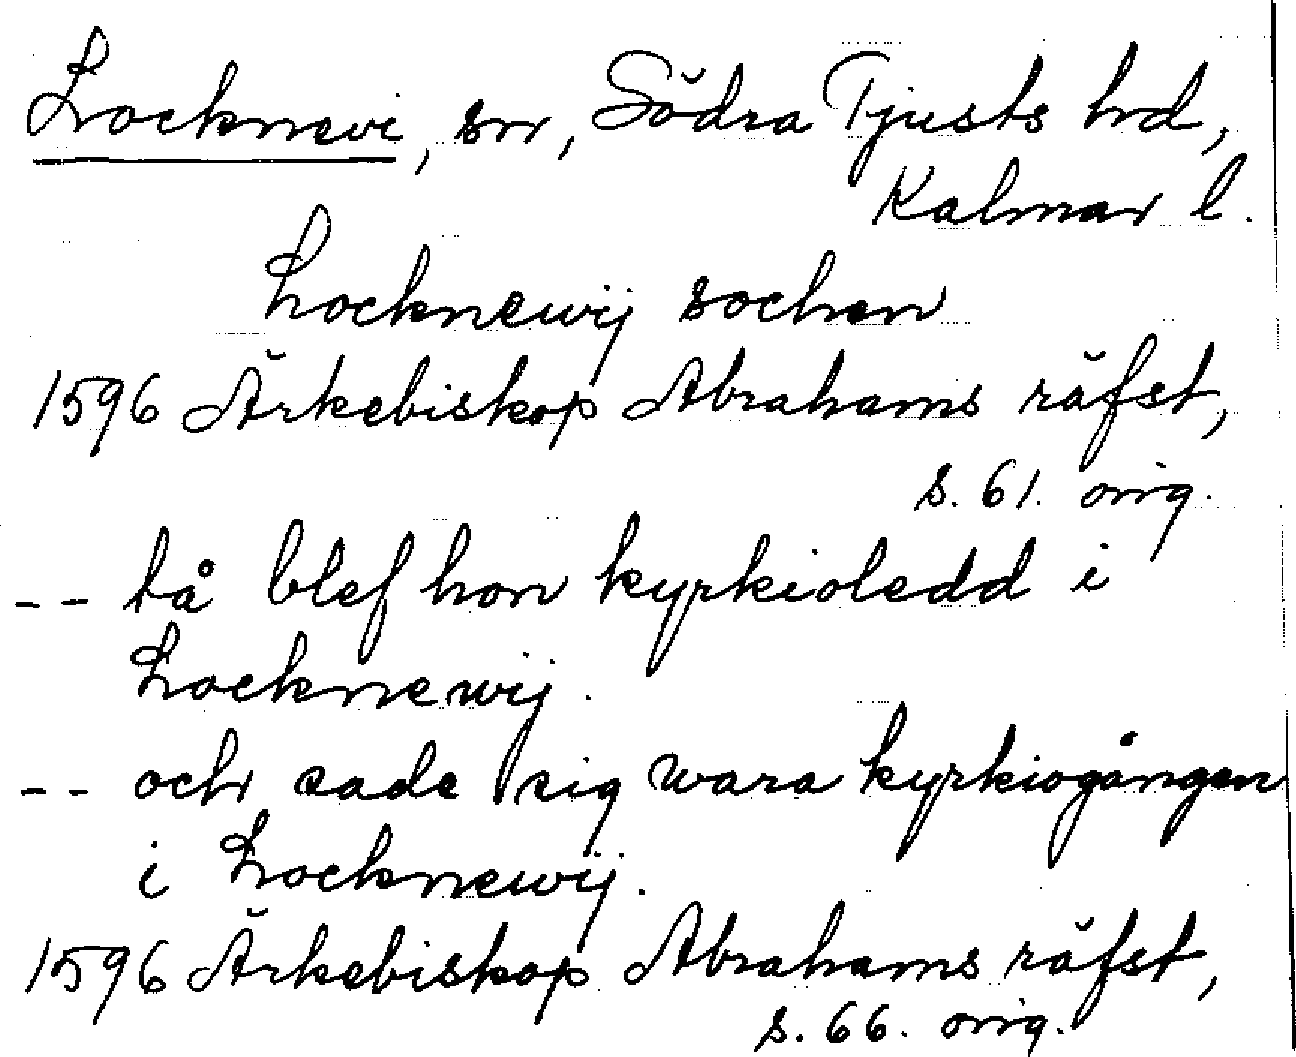 Locknevi, sn, Södra Tjusts hd,
Kalmar l.
Locknewij sochen
1596 Ärkebiskop Abrahams räfst,
s. 61. orig.
-- tå blef hon kyrkioledd i
Locknewij.
-- och sade sig wara kyrkiogången
i Locknewij.
1596 Ärkebiskop Abrahams räfst,
s. 66. orig.